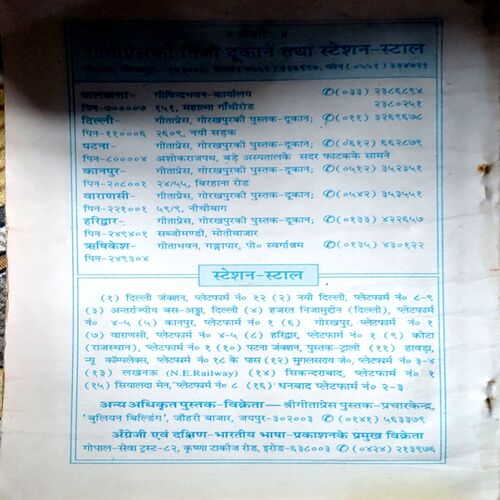 ॥ श्रीहरिः ॥
गीताप्रेसकी निजी दूकानें तथा स्टेशन-स्टाल
कलकत्ता- गोविन्दभवन-कार्यालय ✆(०३३) २३८६८९४
पिन-७००००७ १५१, महात्मा गाँधीरोड २३८०२५१
दिल्ली- गीताप्रेस, गोरखपुरकी पुस्तक-दूकान; ✆(०११) ३२६९६७८
पिन-११०००६ २६०९, नयी सड़क
पटना- गीताप्रेस, गोरखपुरकी पुस्तक-दूकान; ✆(०६१२) ६६२८७९
पिन-८००००४ अशोकराजपथ, बड़े अस्पतालके सदर फाटकके सामने
कानपुर- गीताप्रेस, गोरखपुरकी पुस्तक-दूकान; ✆(०५१२) ३५२३५१
पिन-२०८००१ २४/५५, बिरहाना रोड
वाराणसी- गीताप्रेस, गोरखपुरकी पुस्तक-दूकान; ✆(०५४२) ३५३५५१
पिन-२२१००१ ५९/९, नीचीबाग
हरिद्वार- गीताप्रेस, गोरखपुरकी पुस्तक-दूकान; ✆(०१३३) ४२२६५७
पिन-२४९४०१ सब्जीमण्डी, मोतीबाजार
ऋषिकेश- गीताभवन, गङ्गापार, पो० स्वर्गाश्रम ✆(०१३५) ४३०१२२
पिन-२४९३०४
स्टेशन-स्टाल
(१) दिल्ली जंक्शन, प्लेटफार्म नं० १२ (२) नयी दिल्ली, प्लेटफार्म नं० ८-९
(३) अन्तर्राज्यीय बस-अड्डा, दिल्ली (४) हजरत निजामुद्दीन (दिल्ली), प्लेटफार्म
नं० ४-५ (५) कानपुर, प्लेटफार्म नं० १ (६) गोरखपुर, प्लेटफार्म नं० १
(७) वाराणसी, प्लेटफार्म नं० ४-५ (८) हरिद्वार, प्लेटफार्म नं० १ (९) कोटा
(राजस्थान), प्लेटफार्म नं० १ (१०) पटना जंक्शन, पुस्तक-ट्राली (११) हावड़ा,
न्यू कॉम्पलेक्स, प्लेटफार्म नं० १८ के पास (१२) मुगलसराय जं०, प्लेटफार्म नं० ३-४
(१३) लखनऊ (N.E.Railway) (१४) सिकन्दराबाद, प्लेटफार्म नं० १
(१५) सियालदा मेन, प्लेटफार्म नं० ८ (१६) धनबाद प्लेटफार्म नं० २-३
अन्य अधिकृत पुस्तक-विक्रेता— श्रीगीताप्रेस पुस्तक-प्रचारकेन्द्र,
'बुलियन बिल्डिंग', जौहरी बाजार, जयपुर-३०२००३ ✆(०१४१) ५६३३७९
अँग्रेजी एवं दक्षिण-भारतीय भाषा-प्रकाशनके प्रमुख विक्रेता
गोपाल-सेवा ट्रस्ट-८२, कृष्णा टाकीज रोड, इरोड-६३८००३ ✆(०४२४) २१३९७६